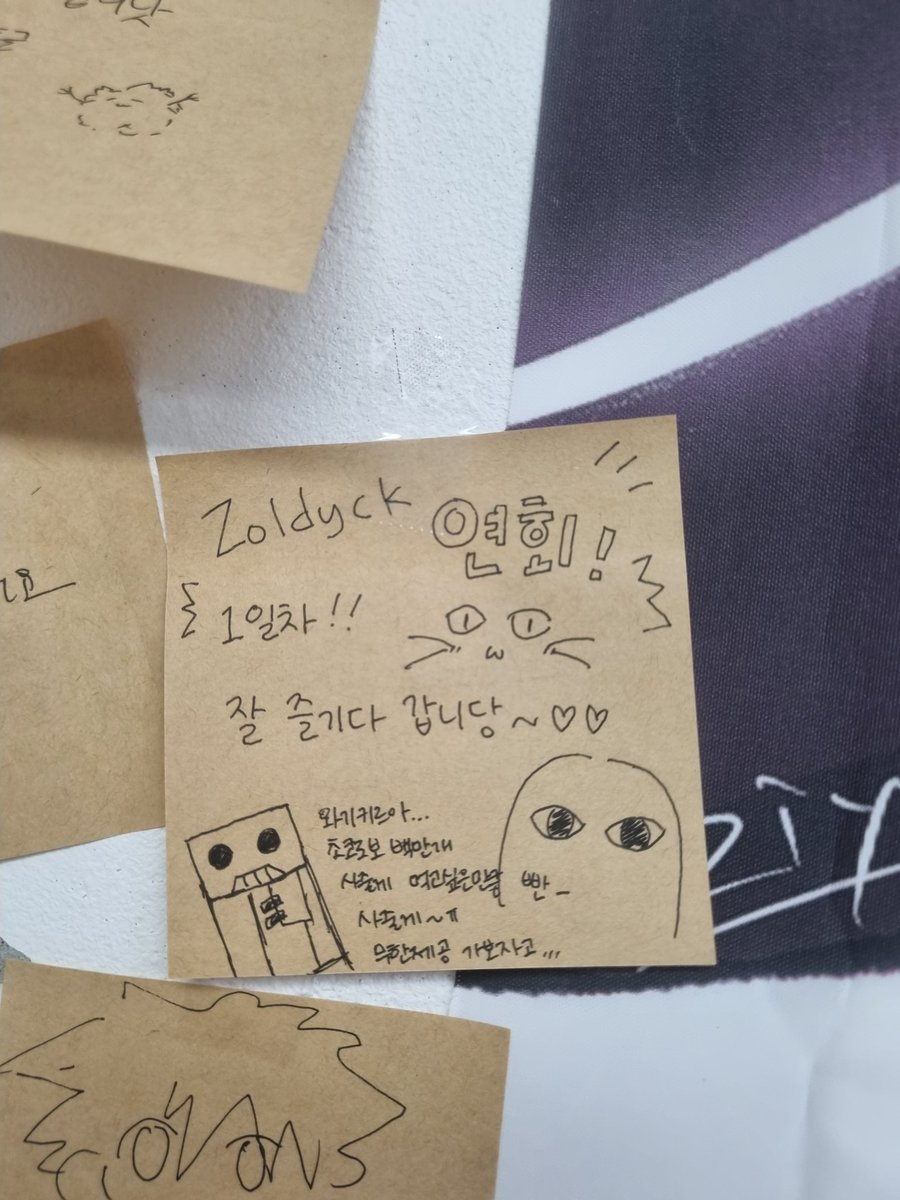 Zoldyck 연회!
1일차!!
잘 즐기다 갑니당~♡♡
와기키르아...
초코로보 백만개
사줄게 먹고싶은만큼
사줄게~ㅠ
무한제공 가보자고...
빤_